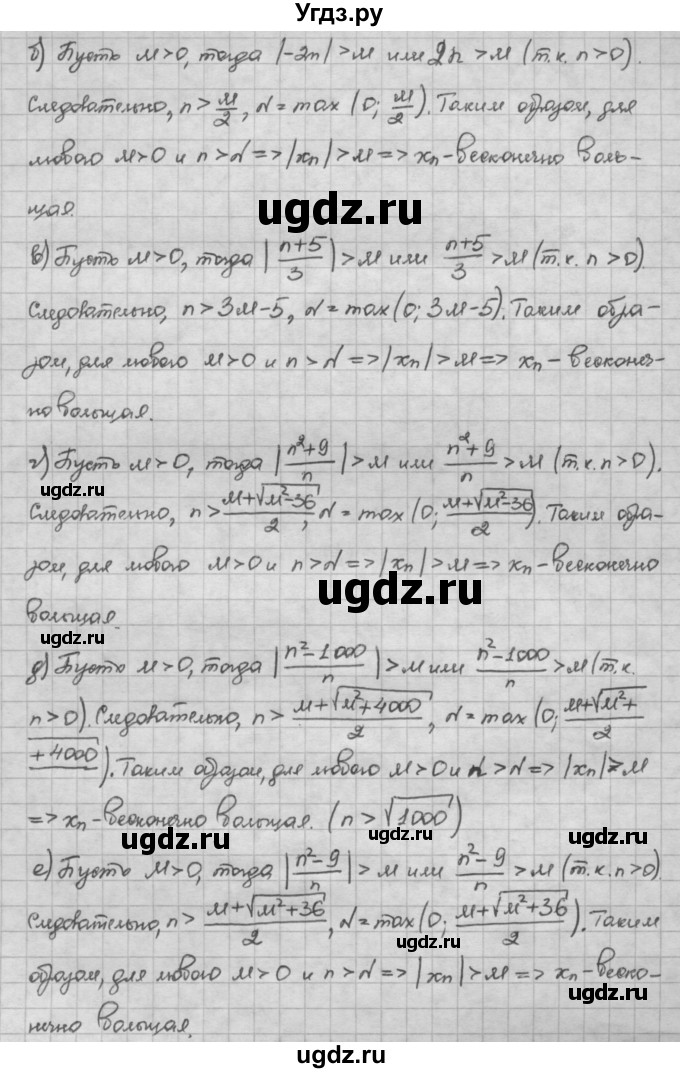 Угдз.ру
б) Пусть M>0, тогда |-2n|>M или 2n>M (т.к. n>0).
Следовательно, n>M/2, N=max(0; M/2). Таким образом, для
любого M>0 и n>N=>|xₙ|>M=>xₙ-бесконечно боль-
шая.
ugdz.ru
ugdz.ru
в) Пусть M>0, тогда |(n+5)/3|>M или (n+5)/3>M (т.к. n>0).
Следовательно, n>3M-5, N=max(0; 3M-5). Таким обра-
зом, для любого M>0 и n>N=>|xₙ|>M=> xₙ- бесконеч-
но большая.
ugdz.ru
ugdz.ru
г) Пусть M>0, тогда |(n²+9)/n|>M или (n²+9)/n>M (т.к. n>0).
Следовательно, n>(M+√(M²-36))/2, N=max(0; (M+√(M²-36))/2). Таким обра-
зом, для любого M>0 и n>N=>|xₙ|>M=> xₙ-бесконечно
большая.
ugdz.ru
ugdz.ru
ugdz.ru
д) Пусть M>0, тогда |(n²-1000)/n|>M или (n²-1000)/n>M (т.к.
n>0). Следовательно, n>(M+√(M²+4000))/2, N=max(0; (M+√(M²+
+4000))/2). Таким образом, для любого M>0 и n>N=>|xₙ|>M
=> xₙ-бесконечно большая. (n>√1000)
ugdz.ru
ugdz.ru
ugdz.ru
ugdz.ru
е) Пусть M>0, тогда |(n²-9)/n|>M или (n²-9)/n>M (т.к. n>0).
Следовательно, n>(M+√(M²+36))/2, N=max(0; (M+√(M²+36))/2). Таким
образом, для любого M>0 и n>N=>|xₙ|>M=> xₙ-беско-
нечно большая.
ugdz.ru
ugdz.ru
ugdz.ru
ugdz.ru